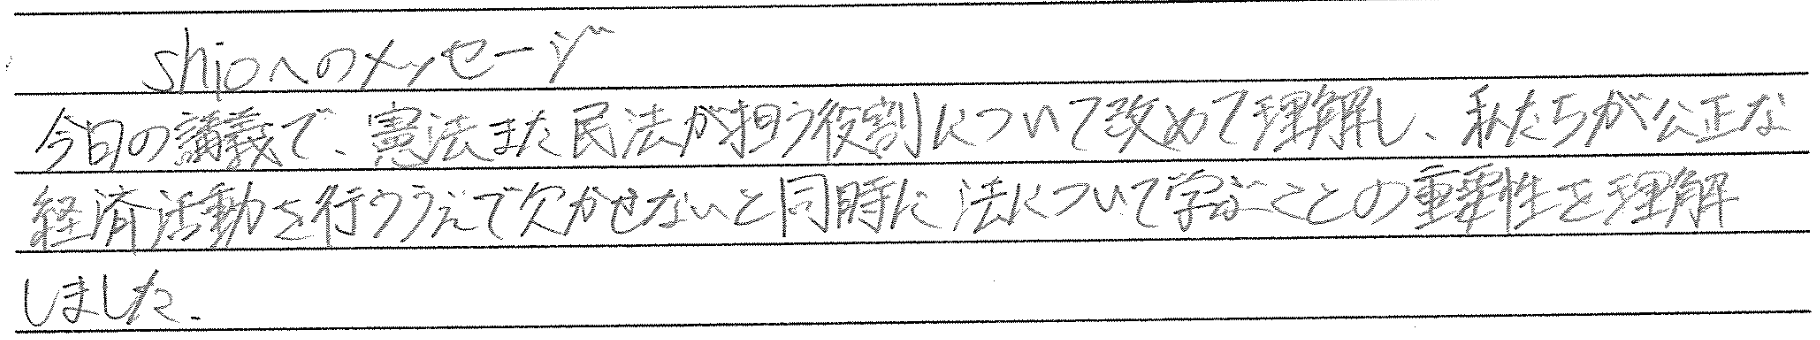 shioへのメッセージ
今日の講義で、憲法また民法が担う役割について改めて理解し、私たちが公正な
経済活動を行ううえで欠かせないと同時に法について学ぶことの重要性を理解
しました.